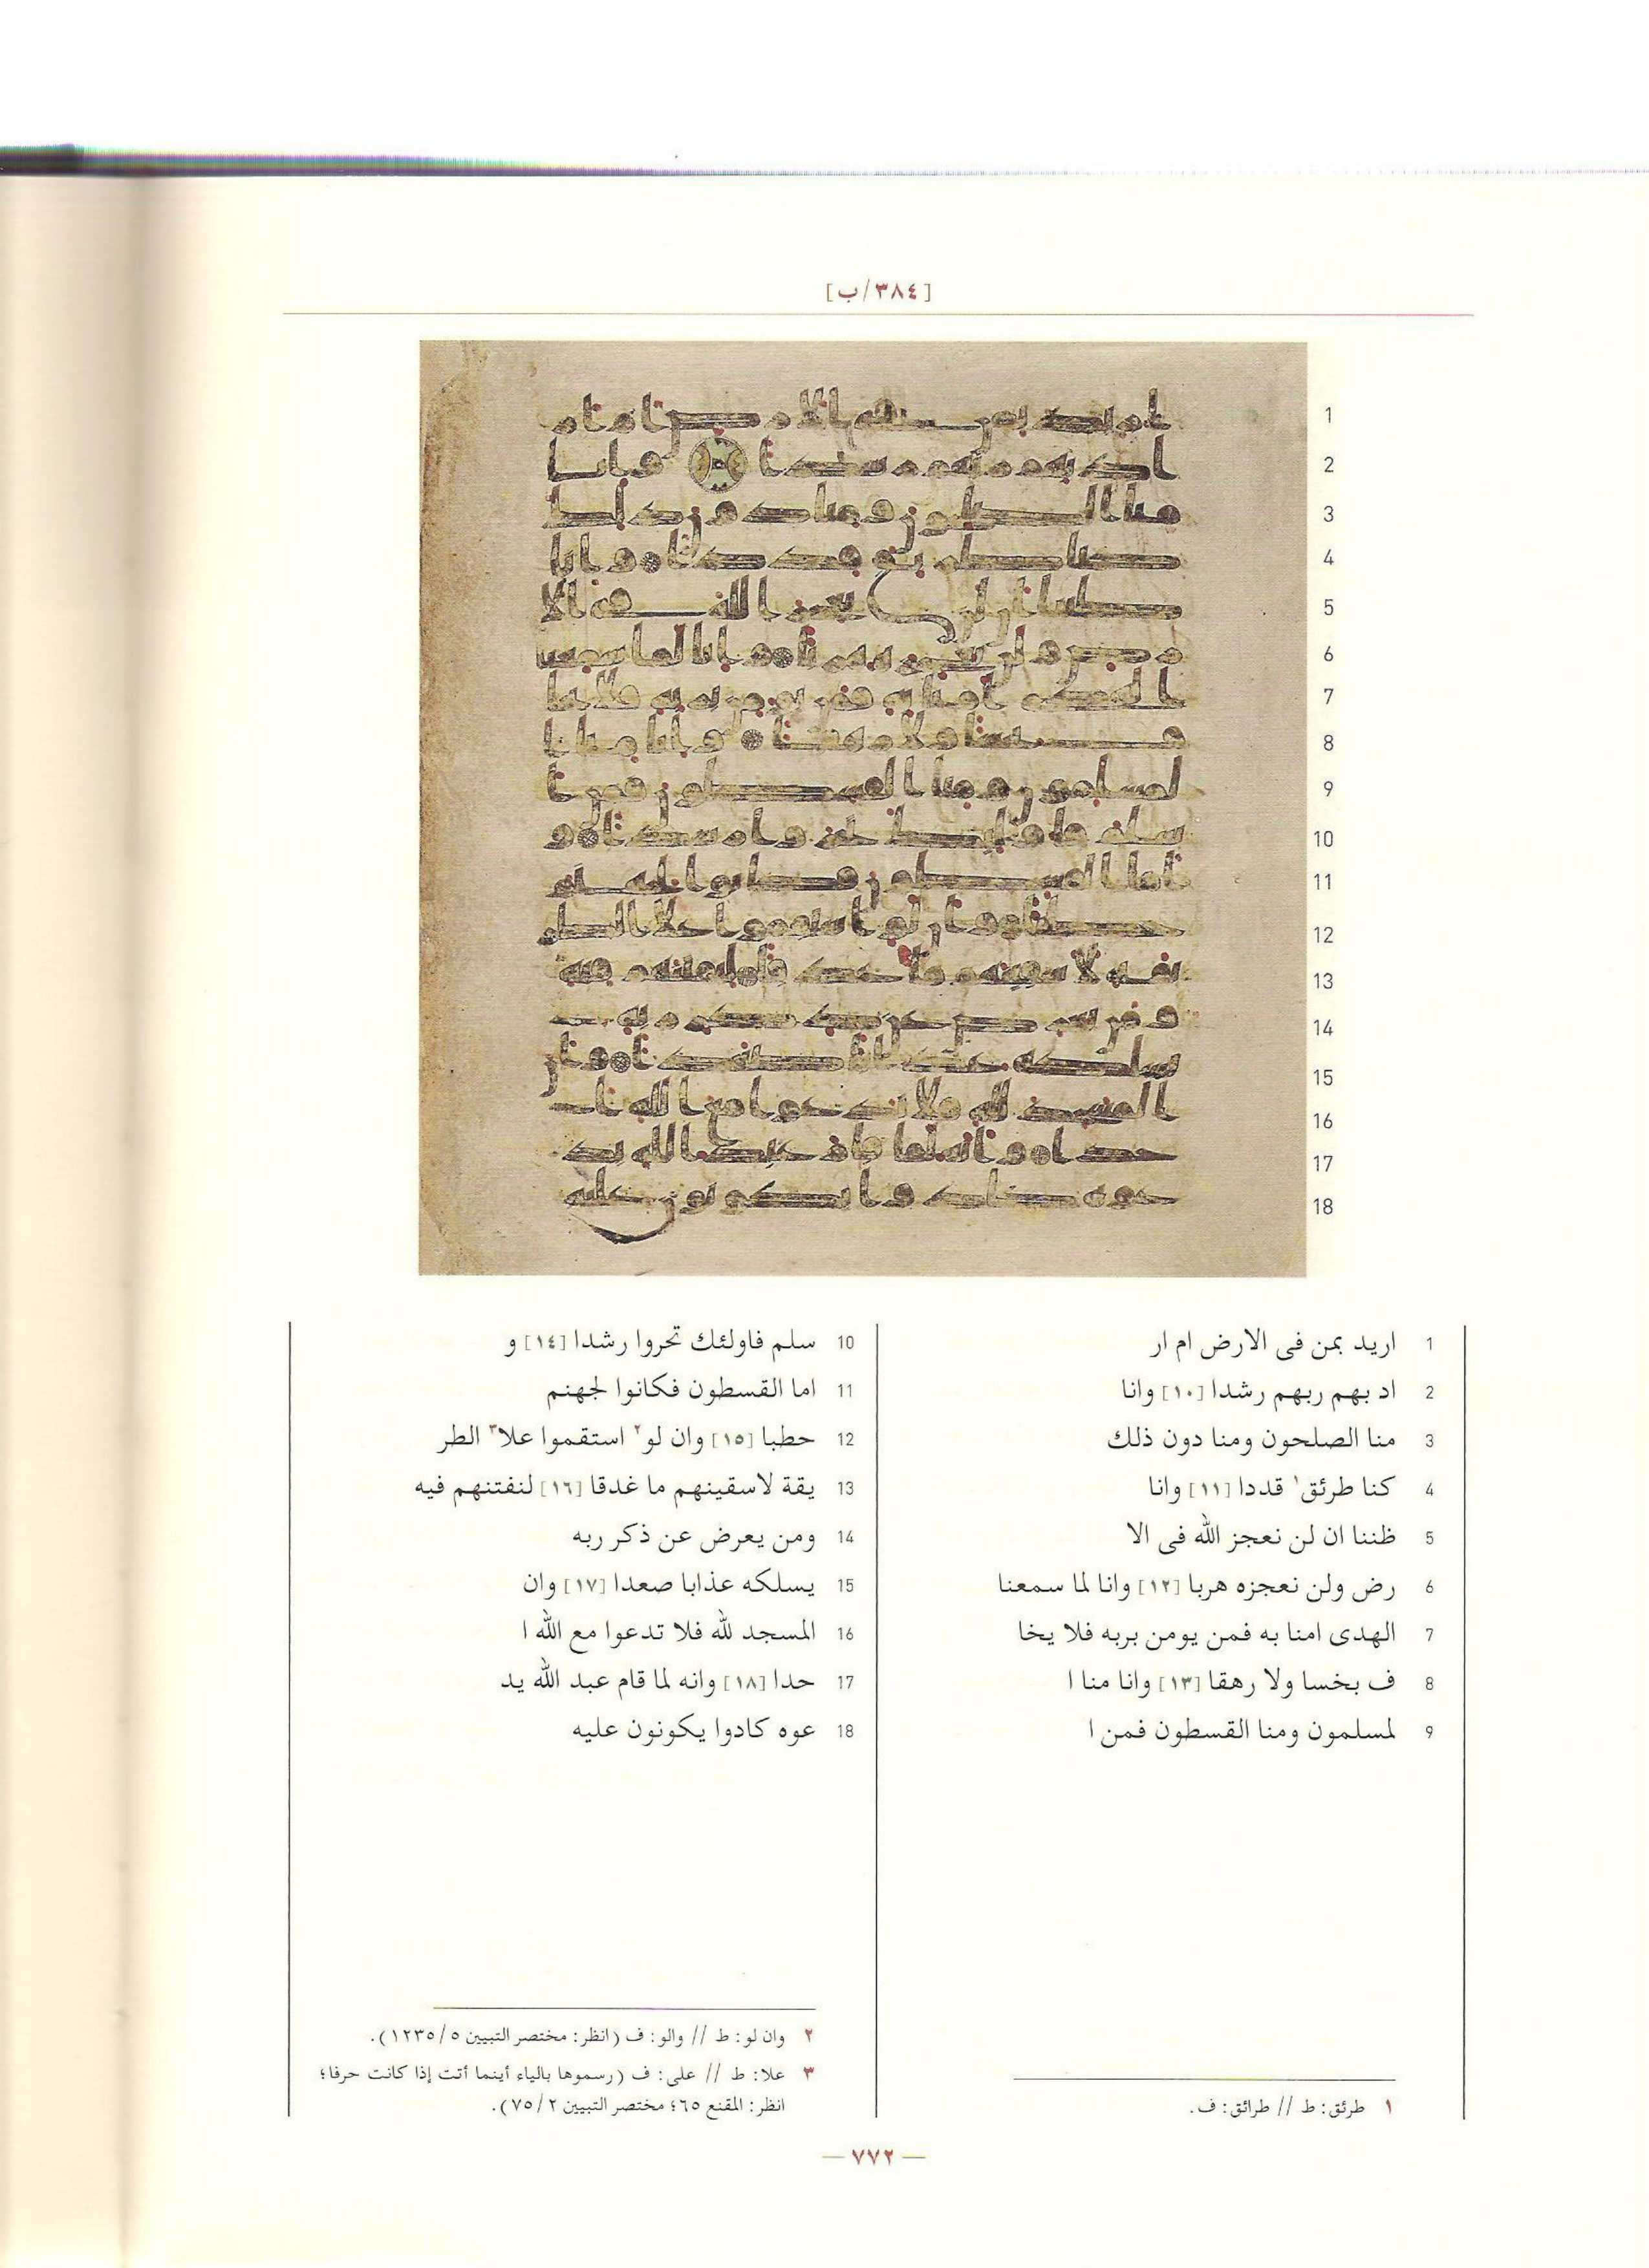 [٣٨٤/ب]
1 اريد بمن فى الارض ام ار
2 اد بهم ربهم رشدا [١٠] وانا
3 منا الصلحون ومنا دون ذلك
4 كنا طرئق١ قددا [١١] وانا
5 ظننا ان لن نعجز الله فى الا
6 رض ولن نعجزه هربا [١٢] وانا لما سمعنا
7 الهدى امنا به فمن يومن بربه فلا يخا
8 ف بخسا ولا رهقا [١٣] وانا منا ا
9 لمسلمون ومنا القسطون فمن ا
10 سلم فاولئك تحروا رشدا [١٤] و
11 اما القسطون فكانوا لجهنم
12 حطبا [١٥] وان لو٢ استقموا علا٣ الطر
13 يقة لاسقينهم ما غدقا [١٦] لنفتنهم فيه
14 ومن يعرض عن ذكر ربه
15 يسلكه عذابا صعدا [١٧] وان
16 المسجد لله فلا تدعوا مع الله ا
17 حدا [١٨] وانه لما قام عبد الله يد
18 عوه كادوا يكونون عليه
١ طرئق: ط // طرائق: ف.
٢ وان لو: ط // والو: ف (انظر: مختصر التبيين ١٢٣٥/٥).
٣ علا: ط // على: ف (رسموها بالياء أينما أتت إذا كانت حرفا؛
انظر: المقنع ٦٥؛ مختصر التبيين ٧٥/٢).
— ٧٧٢ —